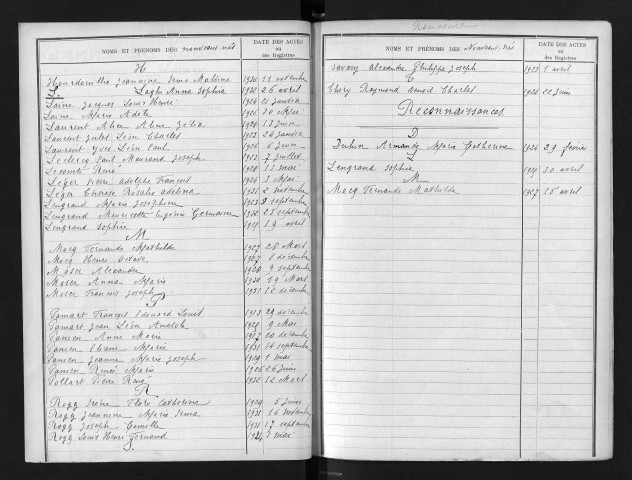 NOMS ET PRÉNOMS DES nouveaux nés
DATE DES ACTES ou des Registres
H
Jeannine Irma 1930 11 novembre
L. Laghi Anna Sophia 1931 26 avril
Laine Jacques Louis Henri 1924 21 janvier
Laine Marie Adèle 1926 30 Mai
Laurent Alice Aline Zélia 1924 13 juin
Laurent Jules Léon Charles 1922 24 janvier
Laurent Yves Léon Paul 1926 6 juin
Leclercq Paul Joseph 1923 7 juillet
Lecomte René 1928 13 mai
Léger Pierre Adolphe François 1924 2 Mai
Léger Thérèse Rosalie Adelina 1931 2 novembre
Lengrand Marie Josephine 1923 9 septembre
Lengrand Henriette Eugénie Germaine 1932 25 septembre
Lengrand Sophie 1931 19 avril
M
Mocq Fernande Mathilde 1927 28 Mars
Mocq Henri Octave 1927 1 décembre
Moser Alexandre 1928 9 septembre
Moser Anna Marie 1930 19 Mars
Moser François Joseph 1931 12 décembre
P
Pamart François Edouard Louis 1923 29 décembre
Pamart Jean Léon Anatole 1928 9 Mai
Pansen Anne Marie 1927 20 décembre
Pansen Marie 1931 14 septembre
Pansen Jeanne Marie Joseph 1929 1 mai
Pansen Renée Marie 1926 26 juin
Pollart Pierre René 1932 12 Mars
R
Rogg Irène Flore Catherine 1929 5 juin
Rogg Jeannine Marie Irma 1931 16 novembre
Rogg Joseph Camille 1931 17 septembre
Rogg Louis Henri Fernand 1924 5 mai
S.
NOMS ET PRÉNOMS DES Nouveaux nés
DATE DES ACTES ou des Registres
Savary Alexandre Philippe Joseph 1923 1 avril
T
Thery Raymond Benoit Charles 1926 22 juin
Reconnaissances
D
Dubin Armande Marie Catherine 1924 29 février
L
Lengrand Sophie 1931 20 avril
M
Mocq Fernande Mathilde 1927 15 avril